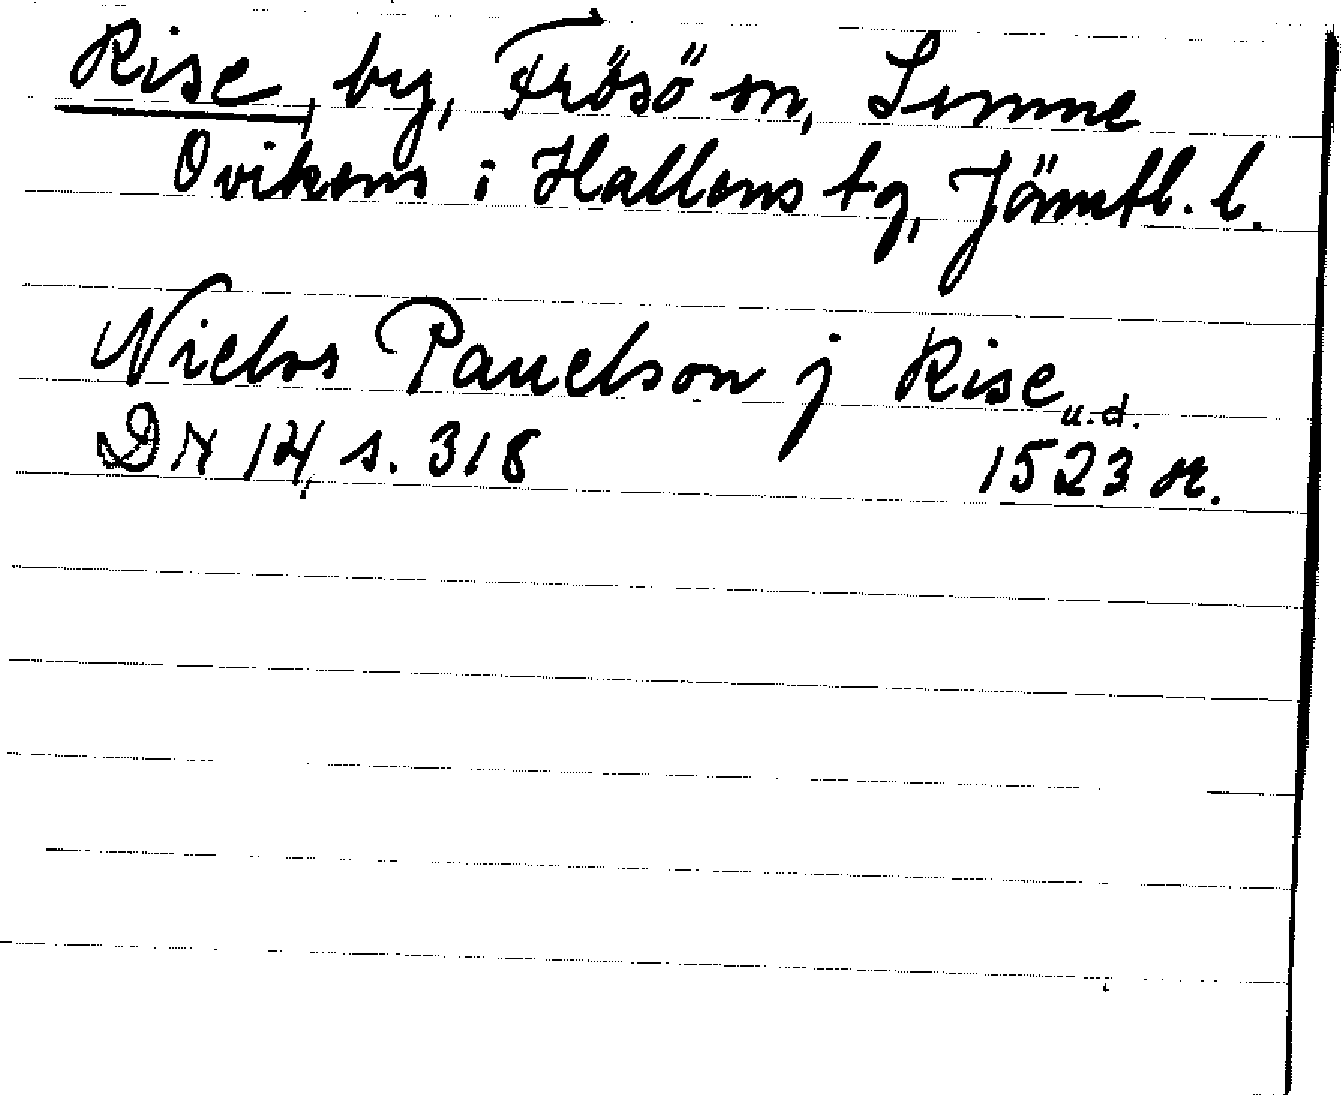 Rise, by, Frösö sn, Sunne
Ovikens i Hallens tg, Jämtl. l.
Nielss Pauelson j Rise
u.d.
DN 14, s. 318 1523 or.